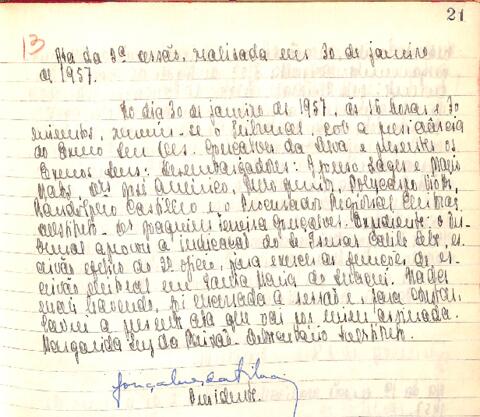 21
13
Ata da 9ª sessão, realizada em 30 de janeiro
de 1957.
No dia 30 de janeiro de 1957, às 16 horas e 30
minutos, reuniu-se o Tribunal, sob a presidência
do Exmo Snr. Des. Gonçalves da Silva e presentes os
Exmos Snrs. Desembargadores: Afonso Lages e Mário
Matos, Drs José Américo,
e o Procurador Regional Eleitoral,
substituto, Dr. Joaquim Ferreira Gonçalves. Expediente: o Tri-
bunal aprovou a indicação do Sr. es-
crivão efetivo do 2º ofício, para exercer as funções de es-
crivão eleitoral em Santa Maria do Suaçuí. Nada
mais havendo, foi encerrada a sessão e, para constar,
lavrei a presente ata que vai por mim assinada.
Margarida Luz da Secretário substituto.
Gonçalves da Silva
Presidente.